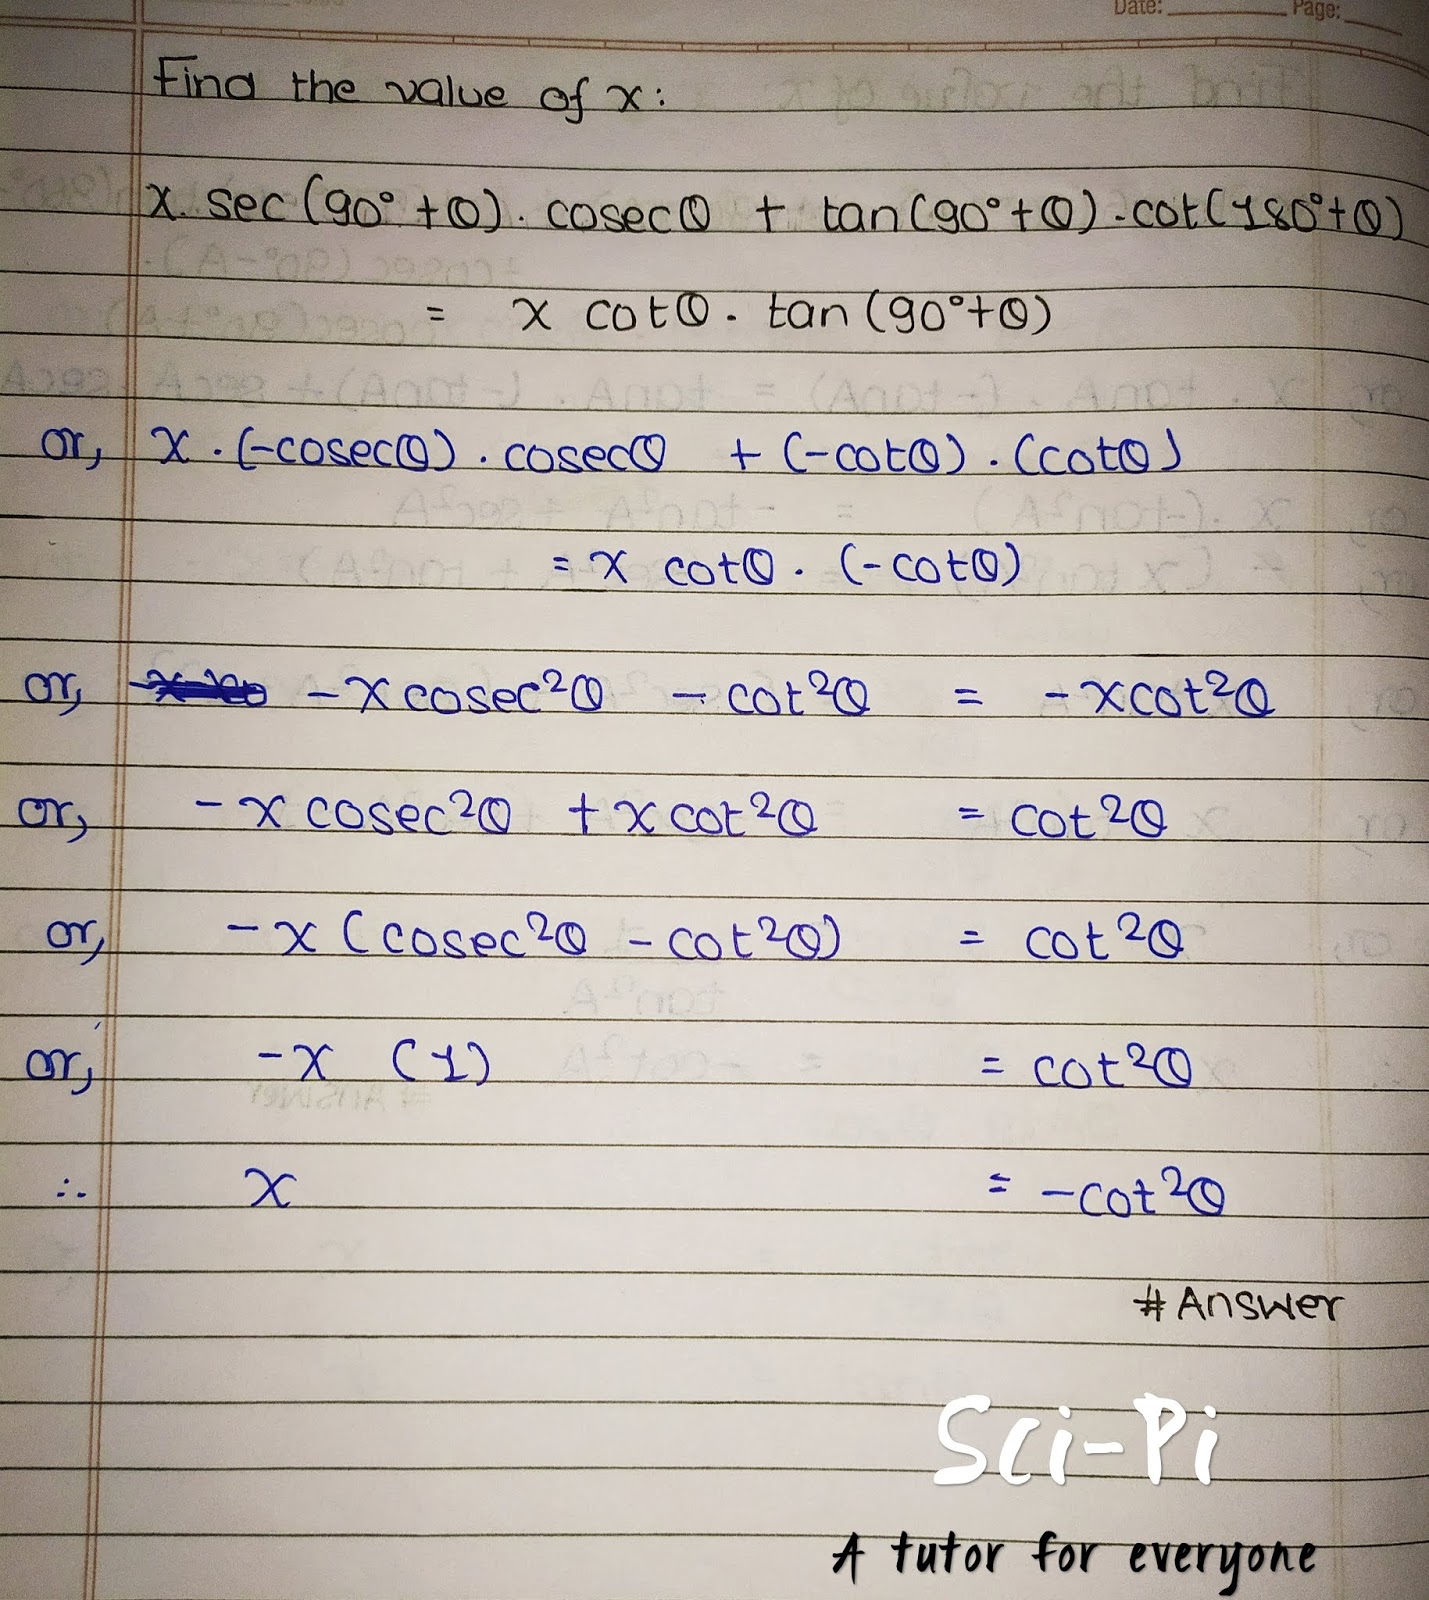 Date: Page:
Find the value of x:
x. sec(90°+θ). cosecθ + tan(90°+θ).cot(180°+θ)
= x cotθ. tan(90°+θ)
or, x.(-cosecθ).cosecθ + (-cotθ).(cotθ)
= x cotθ. (-cotθ)
or, -x cosec²θ - cot²θ = -xcot²θ
or, -x cosec²θ + x cot²θ = cot²θ
or, -x (cosec²θ - cot²θ) = cot²θ
or, -x (1) = cot²θ
∴ x = -cot²θ
# Answer
Sci-Pi
A tutor for everyone